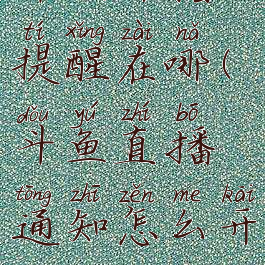 tí xǐng zài nǎ
提醒在哪(
dòu yú zhí bō
斗鱼直播
tōng zhī zěn me kāi
通知怎么开